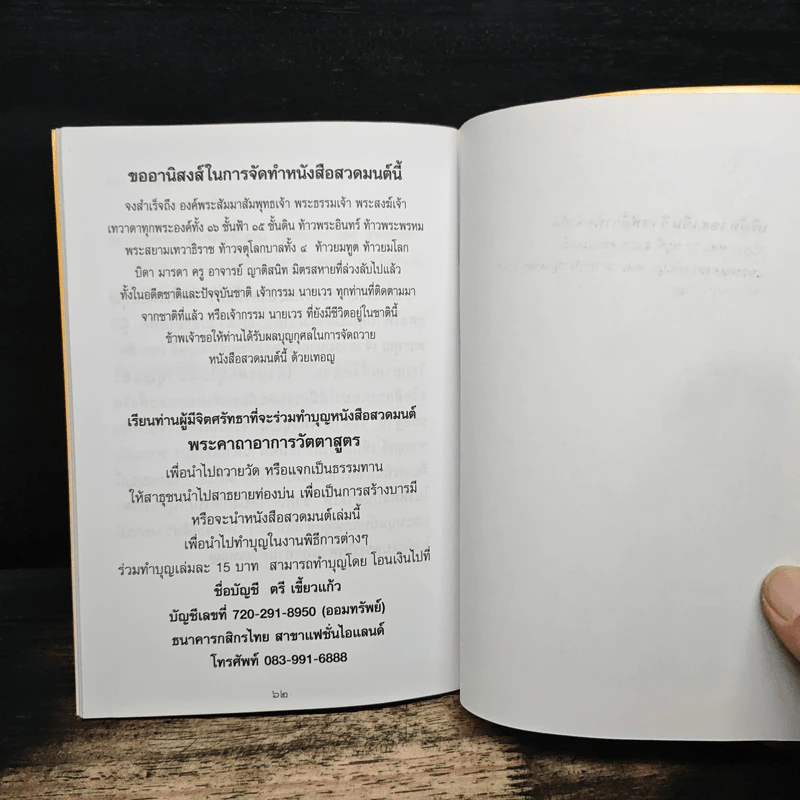 ขออานิสงส์ในการจัดทำหนังสือสวดมนต์นี้
จงสำเร็จถึง องค์พระสัมมาสัมพุทธเจ้า พระธรรมเจ้า พระสงฆ์เจ้า
เทวาดาทุกพระองค์ทั้ง ๑๖ ชั้นฟ้า ๑๕ ชั้นดิน ท้าวพระอินทร์ ท้าวพระพรหม
พระสยามเทวาธิราช ท้าวจตุโลกบาลทั้ง ๔ ท้าวยมทูต ท้าวยมโลก
บิดา มารดา ครู อาจารย์ ญาติสนิท มิตรสหายที่ล่วงลับไปแล้ว
ทั้งในอดีตชาติและปัจจุบันชาติ เจ้ากรรม นายเวร ทุกท่านที่ติดตามมา
จากชาติที่แล้ว หรือเจ้ากรรม นายเวร ที่ยังมีชีวิตอยู่ในชาตินี้
ข้าพเจ้าขอให้ท่านได้รับผลบุญกุศลในการจัดถวาย
หนังสือสวดมนต์นี้ ด้วยเทอญ
เรียนท่านผู้มีจิตศรัทธาที่จะร่วมทำบุญหนังสือสวดมนต์
พระคาถาอาการวัตตาสูตร
เพื่อนำไปถวายวัด หรือแจกเป็นธรรมทาน
ให้สาธุชนนำไปสาธยายท่องบ่น เพื่อเป็นการสร้างบารมี
หรือจะนำหนังสือสวดมนต์เล่มนี้
เพื่อนำไปทำบุญในงานพิธีการต่างๆ
ร่วมทำบุญเล่มละ 15 บาท สามารถทำบุญโดย โอนเงินไปที่
ชื่อบัญชี ตรี เขี้ยวแก้ว
บัญชีเลขที่ 720-291-8950 (ออมทรัพย์)
ธนาคารกสิกรไทย สาขาแฟชั่นไอแลนด์
โทรศัพท์ 083-991-6888
๖๒